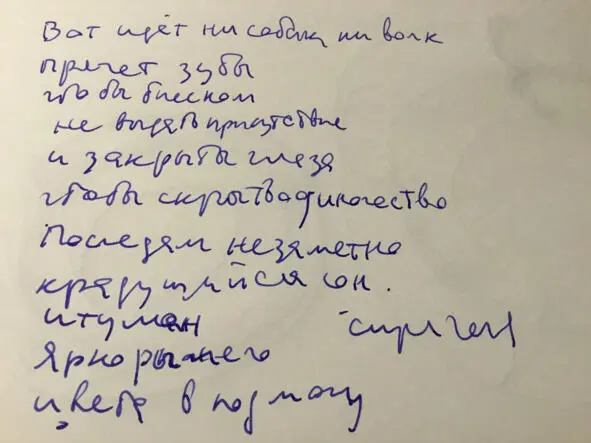 Вот идёт ни собака ни волк
прячет зубы
чтобы блеском
не выдать присутствие
и закрыты глаза
чтобы скрыть одиночество
незаметно
крадущийся он.
и туман
Ярко рыжего
цвета в подмогу